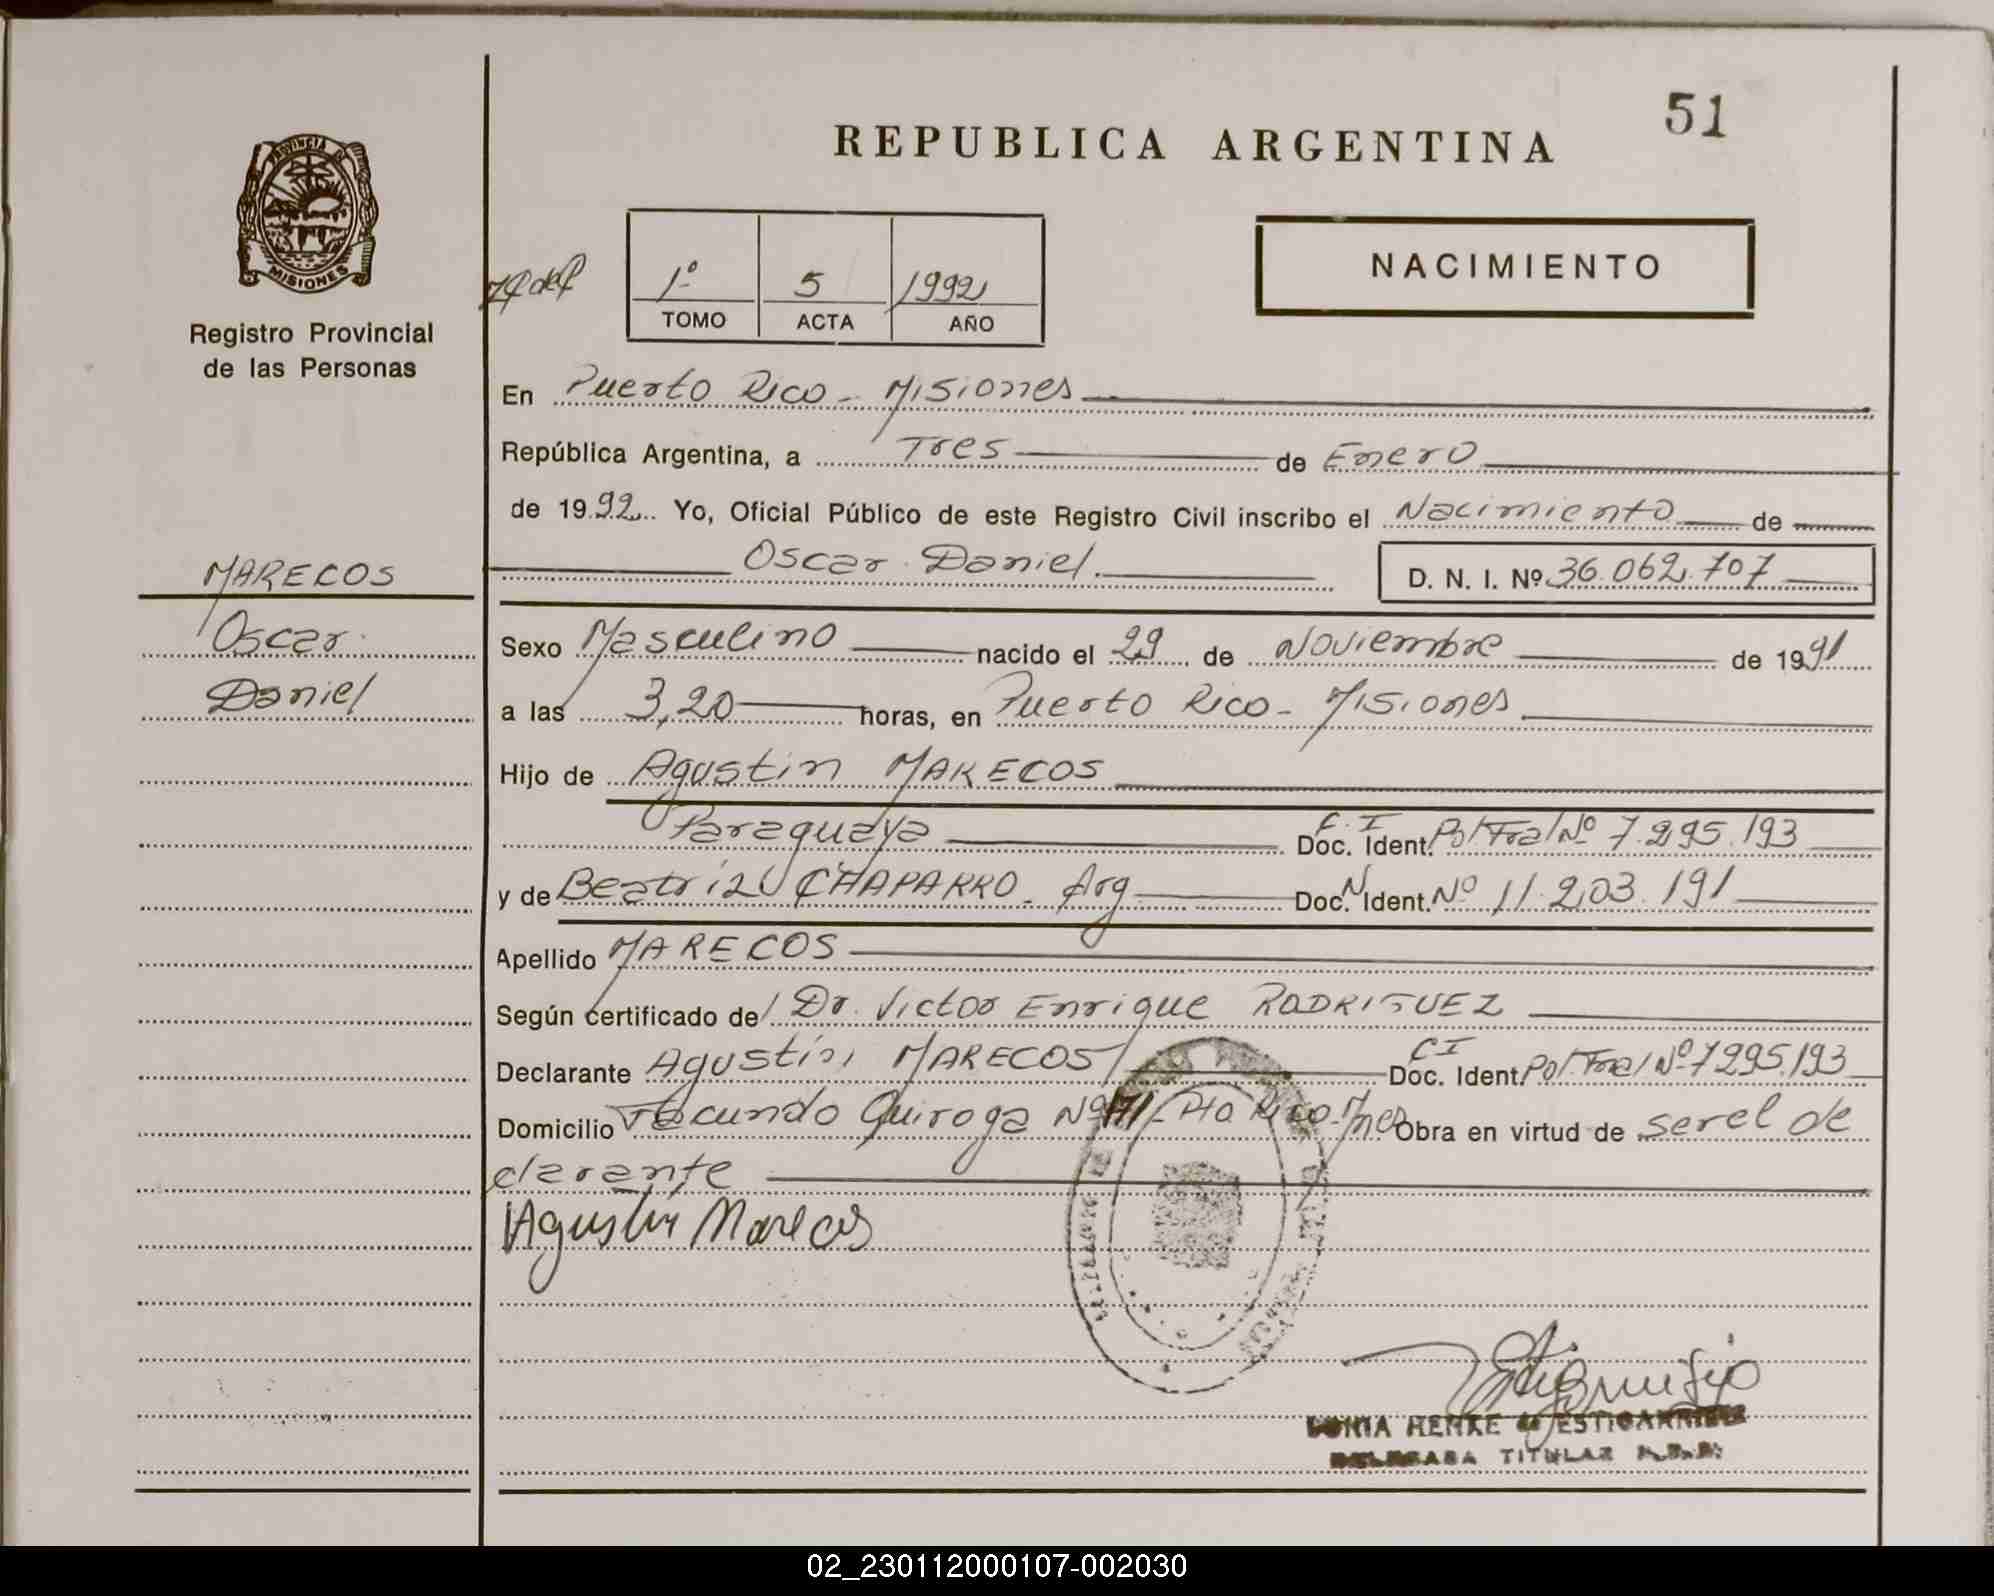 51
REPUBLICA ARGENTINA
PROVINCIA DE
MISIONES
Registro Provincial
de las Personas
1º 5 1992
TOMO ACTA AÑO
NACIMIENTO
En Puerto Rico - Misiones
República Argentina, a Tres de Enero
de 1992 Yo, Oficial Público de este Registro Civil inscribo el Nacimiento de
Oscar Daniel D. N. I. Nº 36.062.707
MARECOS
Oscar
Daniel
Sexo Masculino nacido el 29 de Noviembre de 1991
a las 3,20 horas, en Puerto Rico - Misiones
Hijo de Agustin MARECOS
Paraguaya C.I Doc. Ident. Pol Fral Nº 7.295.193
y de Beatriz CHAPARRO - Arg Doc. N Ident. Nº 11.203.191
Apellido MARECOS
Según certificado del Dr. Victor Enrique RODRIGUEZ
Declarante Agustín MARECOS CI Doc. Ident. Pol. Fral Nº 7295.193
Domicilio Facundo Quiroga Nº 171 - Pto Rico - Mnes Obra en virtud de ser el de
clarante
Agustin Marecos
SONIA HENKE de ESTIGARRIBIA
DELEGADA TITULAR
02_230112000107-002030